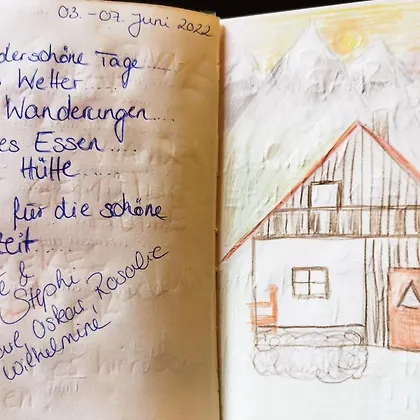 03. - 07. Juni 2022
derschöne Tage.....
Wetter.....
Wanderungen....
es Essen.....
Hütte.....
für die schöne
eit....
e &
Stephi
Oskar, Rosalie
Wilhelmine